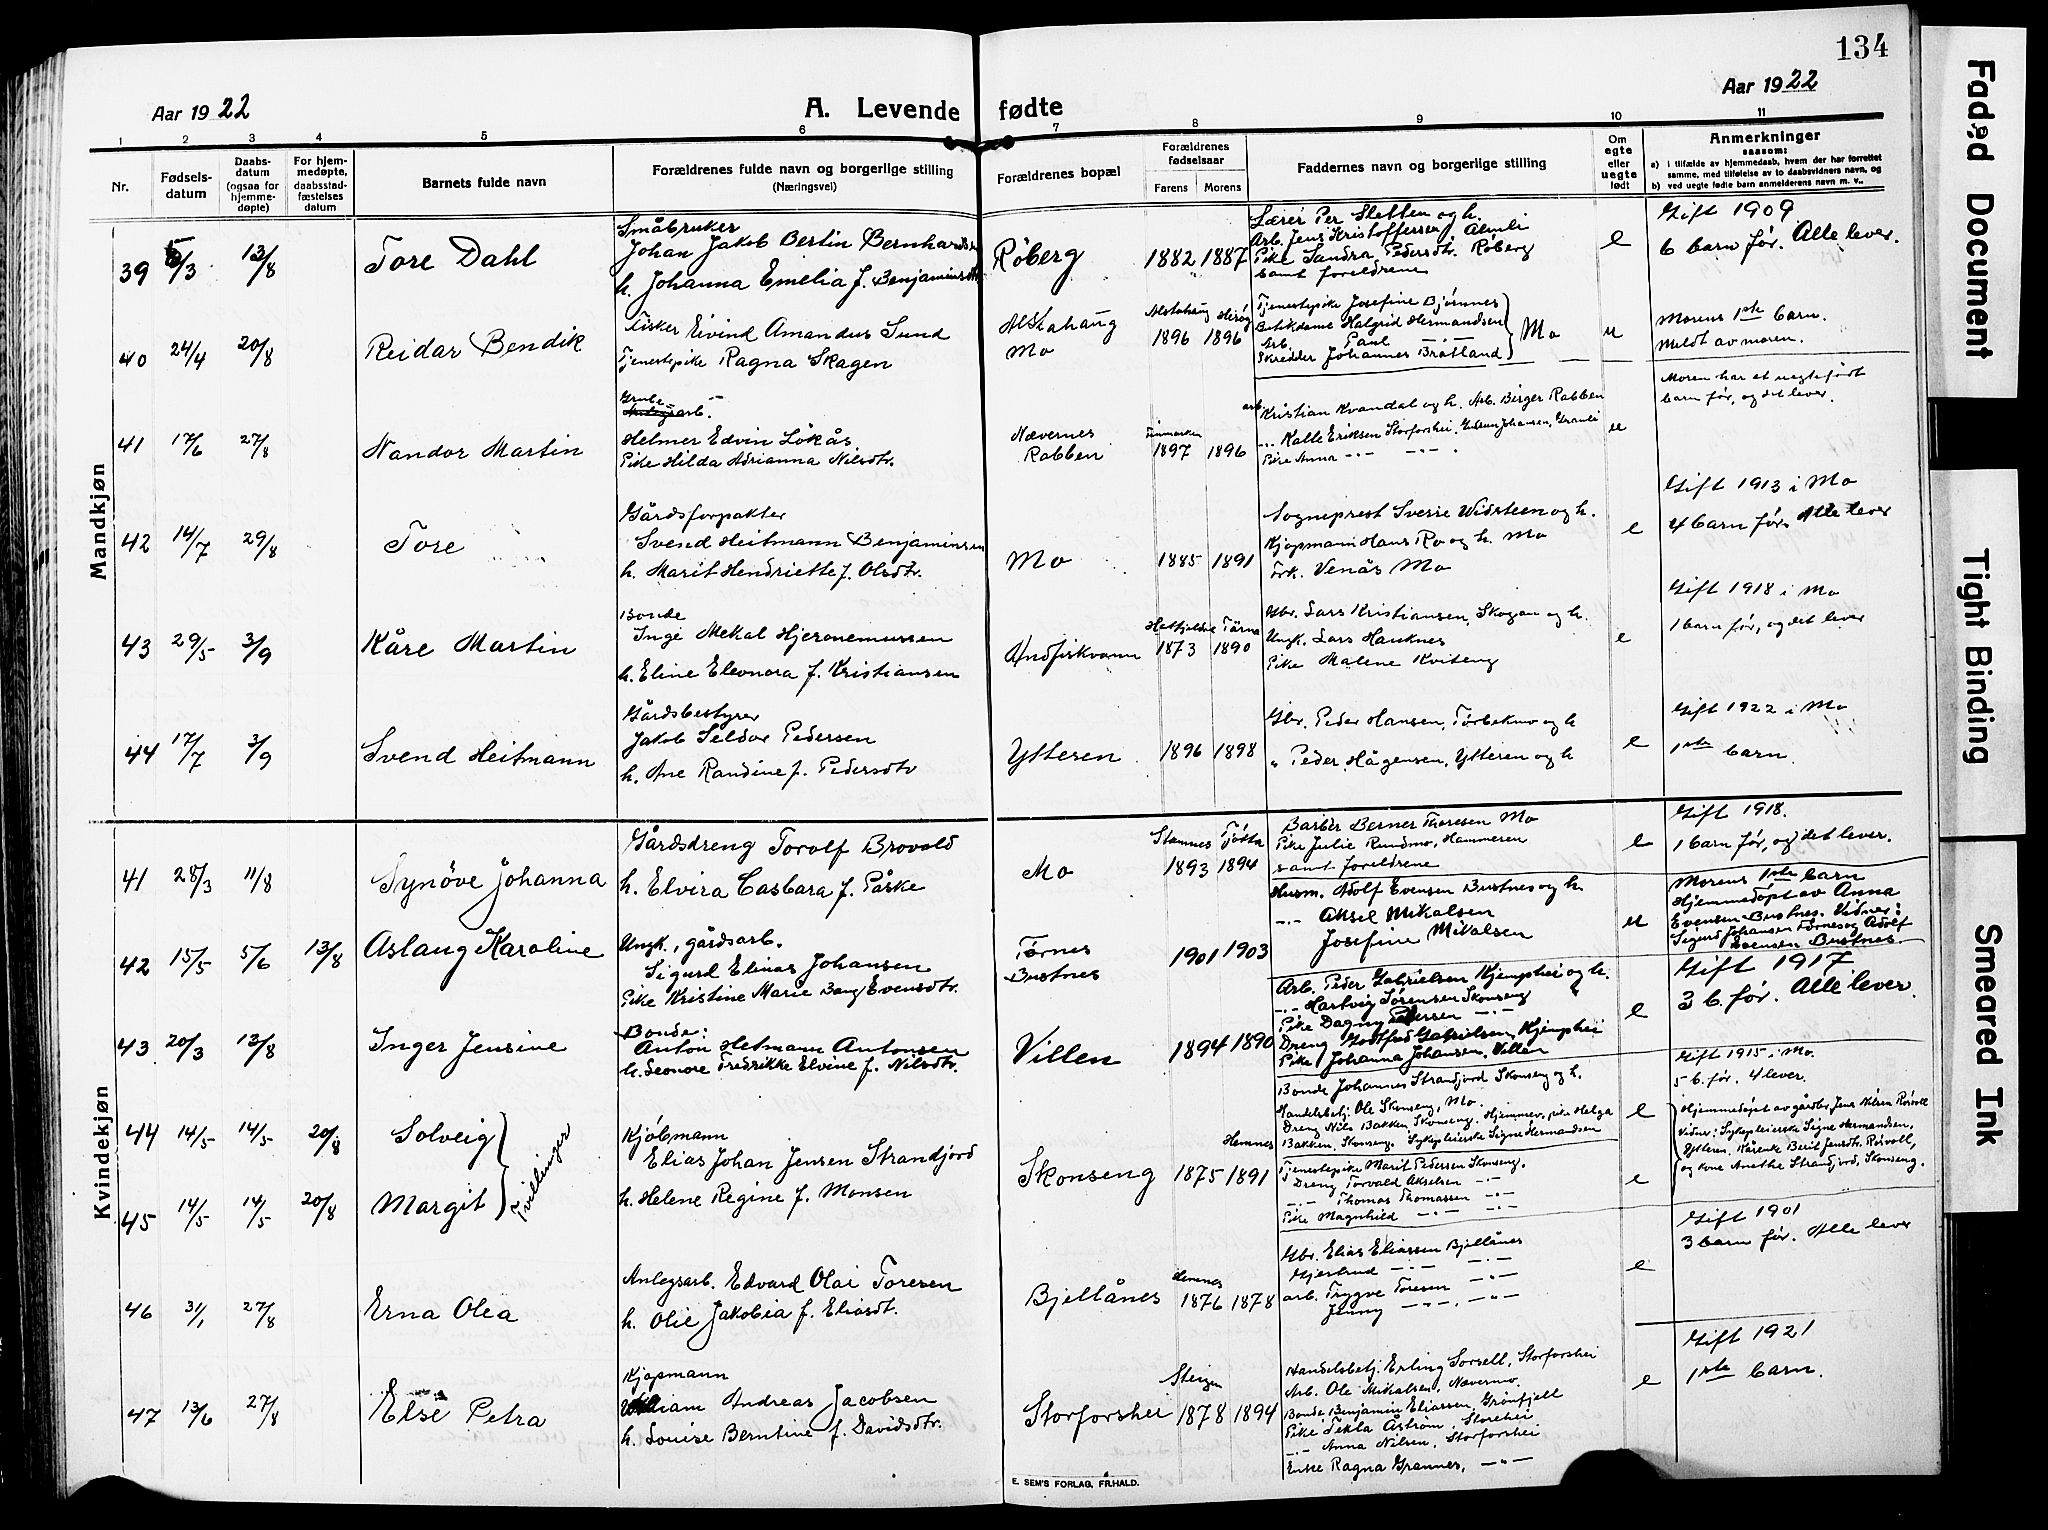 134
Aar 1922
A. Levende fødte
Aar 1922
1 2 3 4 5 6 7 8 9 10 11
Nr.
Fødsels-
datum
Daabs-
datum
(ogsaa for
hjemme-
døpte)
For hjem-
medøpte,
daabsstad-
fæstelses
datum
Barnets fulde navn
Forældrenes fulde navn og borgerlige stilling
(Næringsvei)
Forældrenes bopæl
Forældrenes
fødselsaar
Farens Morens
Faddernes navn og borgerlige stilling
Om
egte
eller
uegte
født
Anmerkninger
saasom:
a) i tilfælde av hjemmedaab, hvem der har forrettet
samme, med tilføielse av to daabsvidners navn, og
b) ved uegte fødte barn anmelderens navn m. v..
Mandkjøn
39 5/3 13/8 Tore Dahl
Småbruker
Johan Jakob Bertin Bernhardsen
h. Johanna Emelia f. Benjaminsdtr
Røberg 1882 1887
Lærer Per Sletten og h.
Arb. Jens Kristoffersen, Almli
Pike Sandra Pedersdtr. Røberg
samt foreldrene
e
Gift 1909
6 barn før. Alle lever.
40 24/4 20/8 Reidar Bendik
Fisker Eivind Amandus Sund
Tjenestepike Ragna Skagen
Alstahaug
Mo
Alstahaug Herøy
1896 1896
Tjenestepike Josefine Bjørnnes
Butikdame Halgrid Hermandsen
Arb. Paul -"-
Skredder Johannes Bratland
Mo
u
Morens 1ste barn.
Meldt av moren.
41 17/6 27/8 Nandor Martin
Grube
arb.
Helmer Edvin Løkås
Pike Hilda Adrianna Nilsdtr.
Nævernes
Rabben
Finmarken
1897 1896
arb. Kristian Kvandal og h. Arb. Birger Rabben
-"- Kalle Eriksen Storforshei,
Pike Anna -"- -"-
u
Moren har et uegte født
barn før, og det lever.
42 14/7 29/8 Tore
Gårdsforpakter
Svend Heitmann Benjaminsen
h. Marit Hendriette f. Olsdtr.
Mo 1885 1891
Sogneprest Sverre Widsteen og h.
Kjøpmann Hans Ro og h. Mo
Frk. Venås Mo
e
Gift 1913 i Mo
4 barn før. Alle lever
43 29/5 3/9 Kåre Martin
Bonde
Inge Mekal Hjeronemussen
h. Eline Eleonora f. Kristiansen
Andfiskvann
Hatfjeldal Tärna
1873 1890
Gbr. Lars Kristiansen, Skogan og h.
Ungk. Lars Hauknes
Pike Malene Kviteng
e
Gift 1918 i Mo
1 barn før, og det lever
44 17/7 3/9 Svend Heitmann
Gårdsbestyrer
Jakob Seldor Pedersen
h. Ane Randine f. Pedersdtr
Ytteren 1896 1898
Gbr. Peder Hansen, Tørbekmo og h
" Peder Hågensen, Ytteren og h
e
Gift 1922 i Mo
1ste barn.
Kvindekjøn
41 28/3 11/8 Synöve Johanna
Gårdsdreng Torolf Brovold
h. Elvira Casbara f. Påske
Mo
Stamnes Tjøtta
1893 1894
Barber Berner Thoresen Mo
Pike Julie Rundmo, Hammeren
samt foreldrene
e
Gift 1918.
1 barn før, og det lever.
42 15/5 5/6 13/8 Aslaug Karoline
Ungk., gårdsarb.
Sigurd Elinas Johansen
Pike Kristine Marie Bang Evensdtr.
Tørnes
Bustnes
1901 1903
Husm. Adolf Evensen Bustnes og h.
-"- Aksel Mikalsen
Josefine Mikalsen
u
Morens 1ste barn
Hjemmedøpt av Anna
Evensen Bustnes. Vidner:
Sigurd Johansen Tørnes og Adolf
Evensen Bustnes.
43 20/3 13/8 Inger Jensine
Bonde:
Anton Hetmann Antonsen
h. Leonore Fredrikke Elvine f. Nilsdtr.
Villen 1894 1890
Arb. Peder Gabrielsen Kjemphei og h.
-"- Hartvig Sørensen Skonseng "
Pike Dagny Pedersen -"-
Dreng Gotfred Gabrielsen, Kjemphei
Pike Johanna Johansen, Villen
e
Gift 1917
3 b. før. Alle lever.
44 14/5 14/5 20/8 Solveig
45 14/5 14/5 20/8 Margit
Tvillinger
Kjöbmann
Elias Johan Jensen Strandjord
h. Helene Regine f. Monsen
Skonseng
Hemnes
1875 1891
Bonde Johannes Strandjord Skonseng og h.
Handelsbetj. Ole Skonseng, Mo.
Dreng Nils Bakken, Skonseng. Hjemmev. pike Helga
Bakken, Skonseng. Sykepleierske Signe Hermandsen
Tjenestepike Marit Pedersen Skonseng.
Dreng Torvald Akselsen -"-
-"- Thomas Thomassen -"-
Pike Magnhild -"- -"-
e
e
Gift 1915 i Mo.
5 b. før. 4 lever.
Hjemmedøpt av gårdbr. Jens Nilsen Røsvoll
Vidner: Sykepleierske Signe Hermandsen,
Ytteren, Kårenke Berit Jensdtr. Røsvoll,
og kone Anethe Strandjord, Skonseng.
46 31/1 27/8 Erna Olea
Anlegsarb. Edvard Olai Toresen
h. Olie Jakobia f. Eliasdt.
Bjellånes
Hemnes
1876 1878
Gbr. Elias Eliassen Bjellånes
Gjertrud -"- -"-
arb. Trygve Toresen -"-
Jenny -"- -"-
e
Gift 1901
3 barn før. Alle lever
47 13/6 27/8 Else Petra
Kjøpmann
William Andreas Jacobsen
h. Louise Berntine f. Davidsdtr.
Storforshei
Steigen
1878 1894
Handelsbetj. Erling Sorsell, Storforshei
Arb. Ole Mikalsen, Nævermo.
Bonde, Benjamin Eliassen, Grønfjell
Pike Tekla Åström, Storshei
-"- Anna Nilsen, Storforshei
Enke Ragna Grannes, -"-
e
Gift 1921
1ste barn.
E. SEM'S FORLAG, FR.HALD.
Faded Document
Tight Binding
Smeared Ink